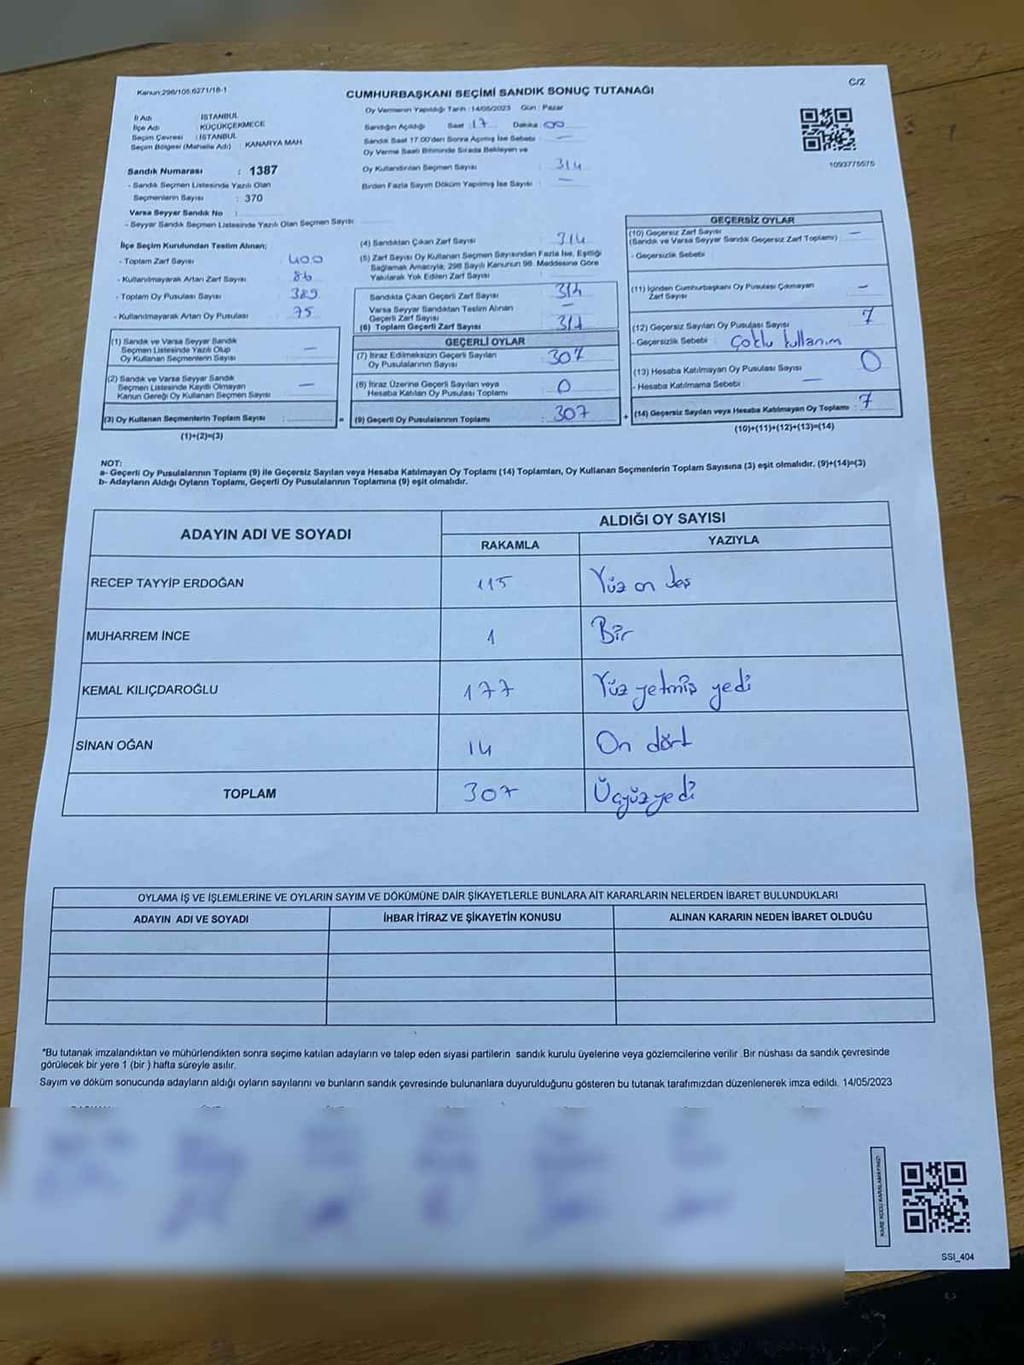 Kanun:298/105,6271/18-1
C/2
CUMHURBAŞKANI SEÇİMİ SANDIK SONUÇ TUTANAĞI
İl Adı : İSTANBUL
İlçe Adı : KÜÇÜKÇEKMECE
Seçim Çevresi : İSTANBUL
Seçim Bölgesi (Mahalle Adı) : KANARYA MAH
Sandık Numarası : 1387
- Sandık Seçmen Listesinde Yazılı Olan
Seçmenlerin Sayısı : 370
Varsa Seyyar Sandık No :
- Seyyar Sandık Seçmen Listesinde Yazılı Olan Seçmen Sayısı
Oy Vermenin Yapıldığı Tarih : 14/05/2023 Gün : Pazar
Sandığın Açıldığı Saat 17 Dakika 00
Sandık Saat 17.00'den Sonra Açılmış İse Sebebi —
Oy Verme Saati Bitiminde Sırada Bekleyen ve
Oy Kullandırılan Seçmen Sayısı 314
Birden Fazla Sayım Döküm Yapılmış İse Sayısı —
1093775575
İlçe Seçim Kurulundan Teslim Alınan;
- Toplam Zarf Sayısı 400
- Kullanılmayarak Artan Zarf Sayısı 86
- Toplam Oy Pusulası Sayısı 389
- Kullanılmayarak Artan Oy Pusulası 75
(1) Sandık ve Varsa Seyyar Sandık
Seçmen Listesinde Yazılı Olup
Oy Kullanan Seçmenlerin Sayısı —
(2) Sandık ve Varsa Seyyar Sandık
Seçmen Listesinde Kayıtlı Olmayan
Kanun Gereği Oy Kullanan Seçmen Sayısı —
(3) Oy Kullanan Seçmenlerin Toplam Sayısı
(1)+(2)=(3)
=
(4) Sandıktan Çıkan Zarf Sayısı 314
(5) Zarf Sayısı Oy Kullanan Seçmen Sayısından Fazla İse, Eşitliği
Sağlamak Amacıyla; 298 Sayılı Kanunun 98. Maddesine Göre
Yakılarak Yok Edilen Zarf Sayısı
Sandıkta Çıkan Geçerli Zarf Sayısı 314
Varsa Seyyar Sandıktan Teslim Alınan
Geçerli Zarf Sayısı —
(6) Toplam Geçerli Zarf Sayısı
GEÇERLİ OYLAR
(7) İtiraz Edilmeksizin Geçerli Sayılan
Oy Pusulalarının Sayısı 307
(8) İtiraz Üzerine Geçerli Sayılan veya
Hesaba Katılan Oy Pusulası Toplamı 0
(9) Geçerli Oy Pusulalarının Toplamı 307
+
GEÇERSİZ OYLAR
(10) Geçersiz Zarf Sayısı —
(Sandık ve Varsa Seyyar Sandık Geçersiz Zarf Toplamı)
- Geçersizlik Sebebi
(11) İçinden Cumhurbaşkanı Oy Pusulası Çıkmayan
Zarf Sayısı —
(12) Geçersiz Sayılan Oy Pusulası Sayısı 7
- Geçersizlik Sebebi Çoklu kullanım
(13) Hesaba Katılmayan Oy Pusulası Sayısı 0
- Hesaba Katılmama Sebebi —
(14) Geçersiz Sayılan veya Hesaba Katılmayan Oy Toplamı 7
(10)+(11)+(12)+(13)=(14)
NOT:
a- Geçerli Oy Pusulalarının Toplamı (9) ile Geçersiz Sayılan veya Hesaba Katılmayan Oy Toplamı (14) Toplamları, Oy Kullanan Seçmenlerin Toplam Sayısına (3) eşit olmalıdır. (9)+(14)=(3)
b- Adayların Aldığı Oyların Toplamı, Geçerli Oy Pusulalarının Toplamına (9) eşit olmalıdır.
ADAYIN ADI VE SOYADI
ALDIĞI OY SAYISI
RAKAMLA YAZIYLA
RECEP TAYYİP ERDOĞAN 115 Yüz on beş
MUHARREM İNCE 1 Bir
KEMAL KILIÇDAROĞLU 177 Yüz yetmiş yedi
SİNAN OĞAN 14 On dört
TOPLAM 307 Üçyüzyedi
OYLAMA İŞ VE İŞLEMLERİNE VE OYLARIN SAYIM VE DÖKÜMÜNE DAİR ŞİKAYETLERLE BUNLARA AİT KARARLARIN NELERDEN İBARET BULUNDUKLARI
ADAYIN ADI VE SOYADI İHBAR İTİRAZ VE ŞİKAYETİN KONUSU ALINAN KARARIN NEDEN İBARET OLDUĞU
*Bu tutanak imzalandıktan ve mühürlendikten sonra seçime katılan adayların ve talep eden siyasi partilerin sandık kurulu üyelerine veya gözlemcilerine verilir. Bir nüshası da sandık çevresinde
görülecek bir yere 1 (bir ) hafta süreyle asılır.
Sayım ve döküm sonucunda adayların aldığı oyların sayılarını ve bunların sandık çevresinde bulunanlara duyurulduğunu gösteren bu tutanak tarafımızdan düzenlenerek imza edildi. 14/05/2023
KARE KODU KARALAMAYINIZ!
SSI_404